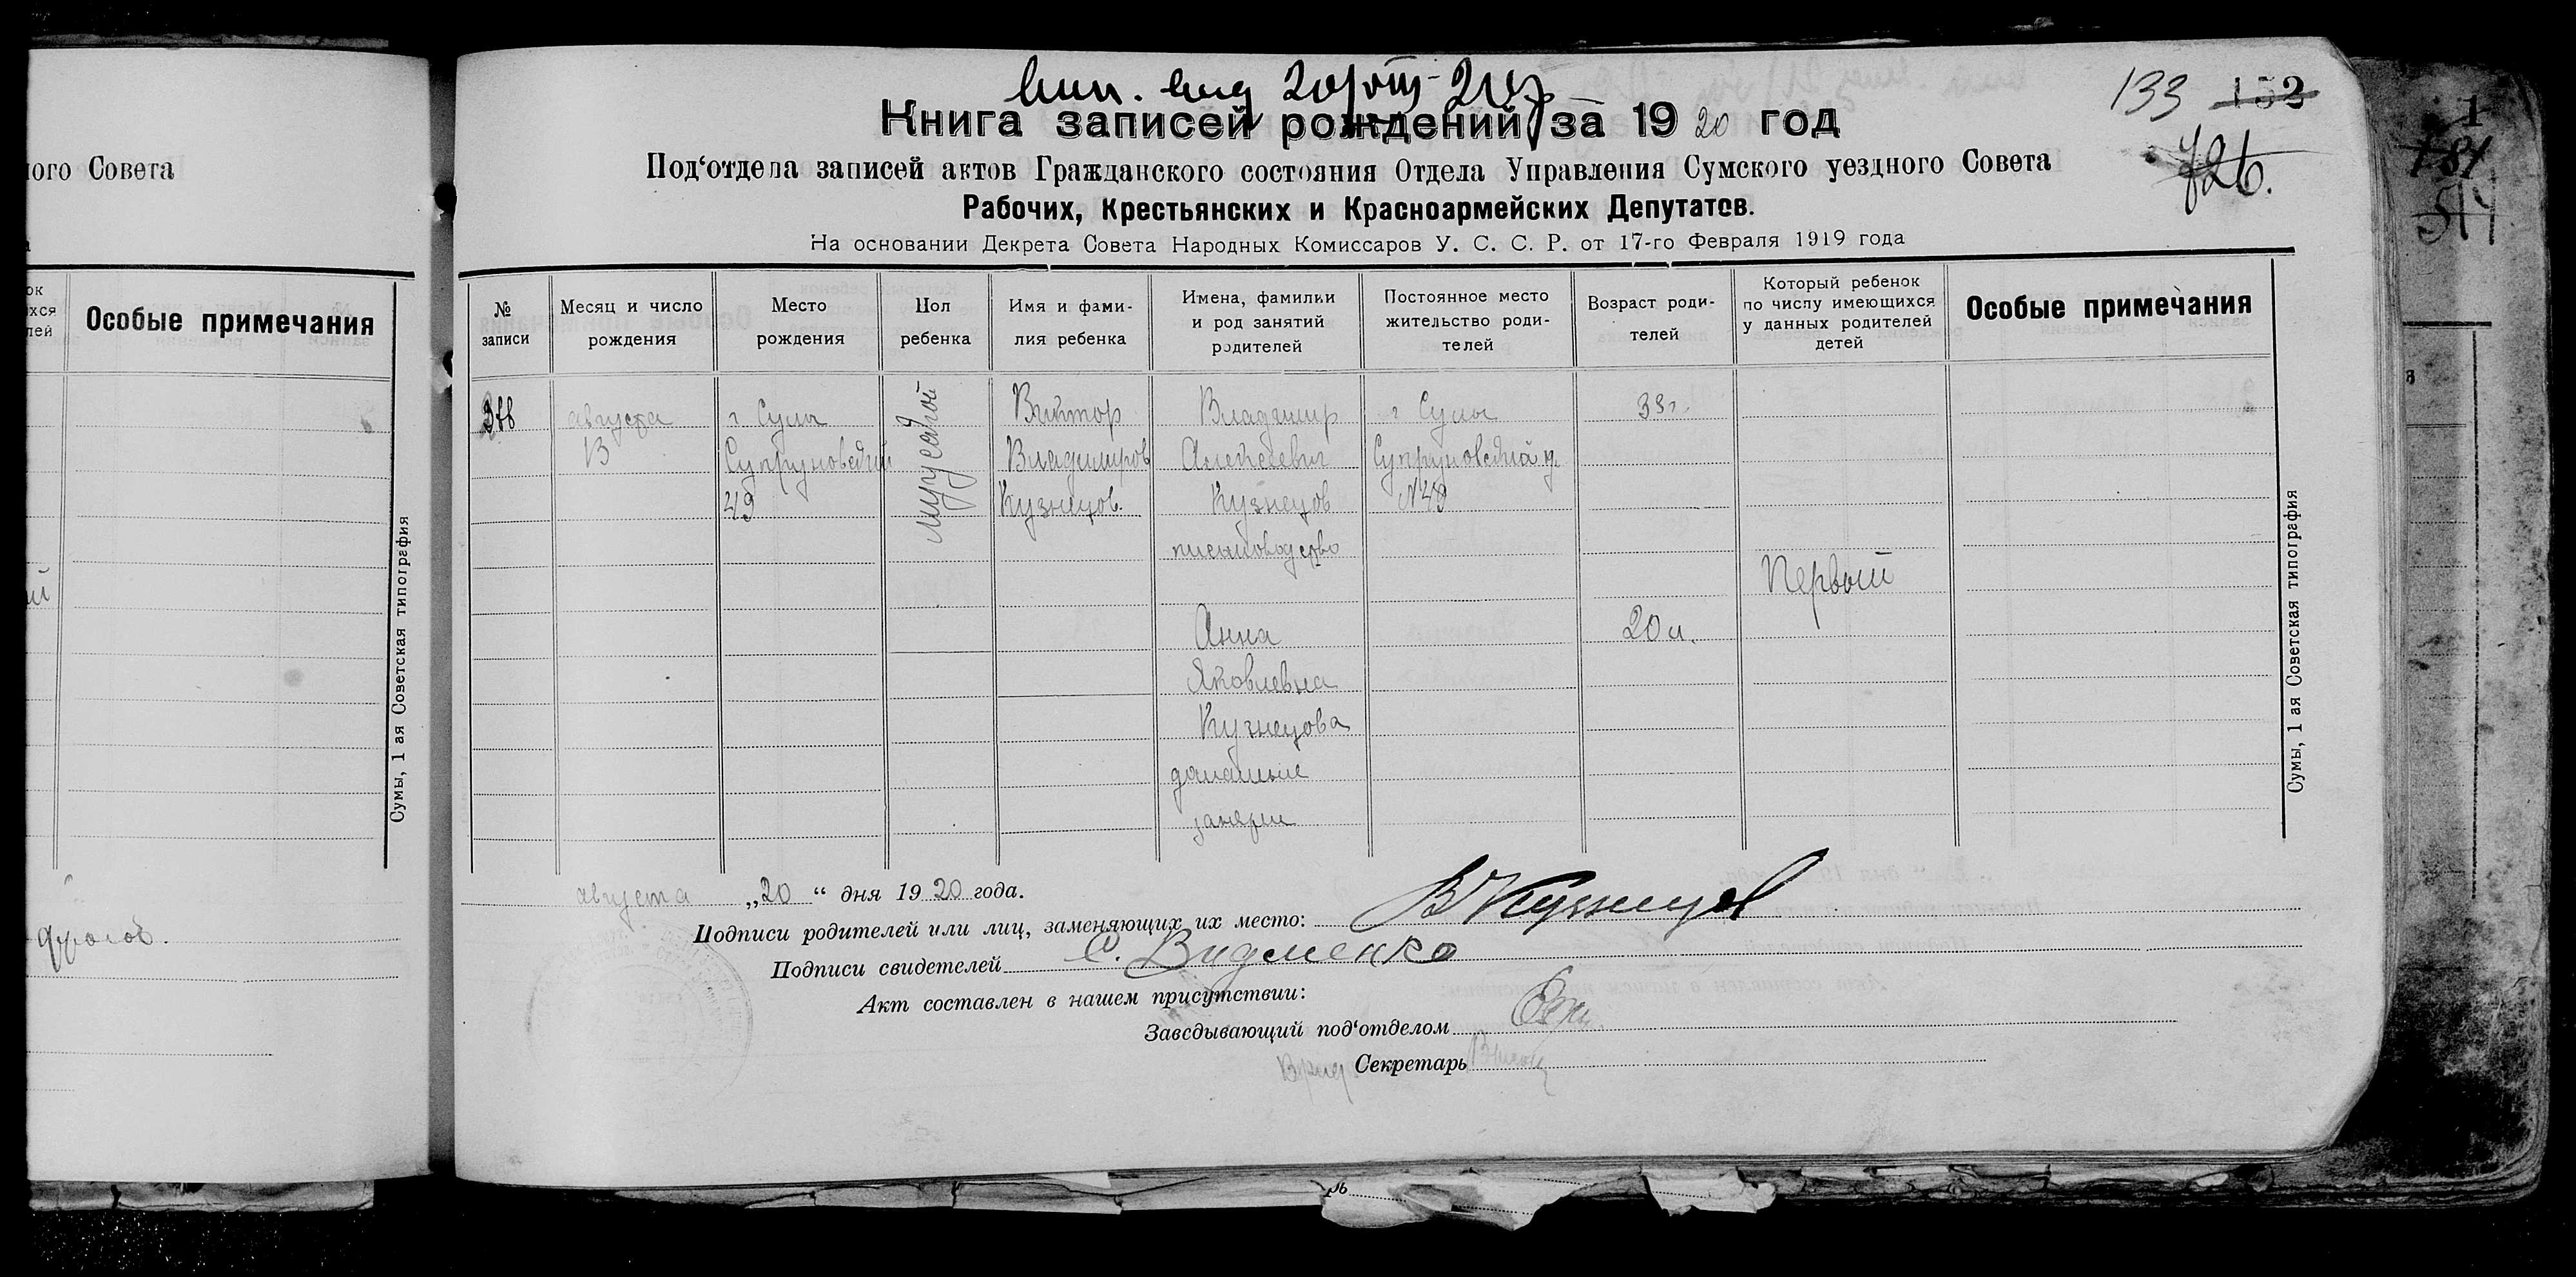 ного Совета
Особые примечания
Сумы, 1 ая Советская типография
133 132
726.
Книга записей рождений за 1920 год
Под‘отдела записей актов Гражданского состояния Отдела Управления Сумского уездного Совета
Рабочих, Крестьянских и Красноармейских Депутатов.
На основании Декрета Совета Народных Комиссаров У. С. С. Р. от 17-го Февраля 1919 года
№ записи
Месяц и число рождения
Место рождения
Пол ребенка
Имя и фами-
лия ребенка
Имена, фамилии
и род занятий
родителей
Постоянное место
жительство роди-
телей
Возраст роди-
телей
Который ребенок
по числу имеющихся
у данных родителей
детей
Особые примечания
августа
13
г Сумы
49
мужской
Виктор
Владимиров
Кузнецов.
Владимир
Алексеевич
Кузнецов
письмоводство
г Сумы
№49
33г.
Первый
Анна
Яковлевна
Кузнецова
домашние
занятия
20 л.
Сумы, 1 ая Советская типография
августа „20“ дня 1920 года.
Подписи родителей или лиц, заменяющих их место: В Кузнецов
Подписи свидетелей С. Видменко
Акт составлен в нашем присутствии:
Заведывающий под‘отделом
Врид Секретарь